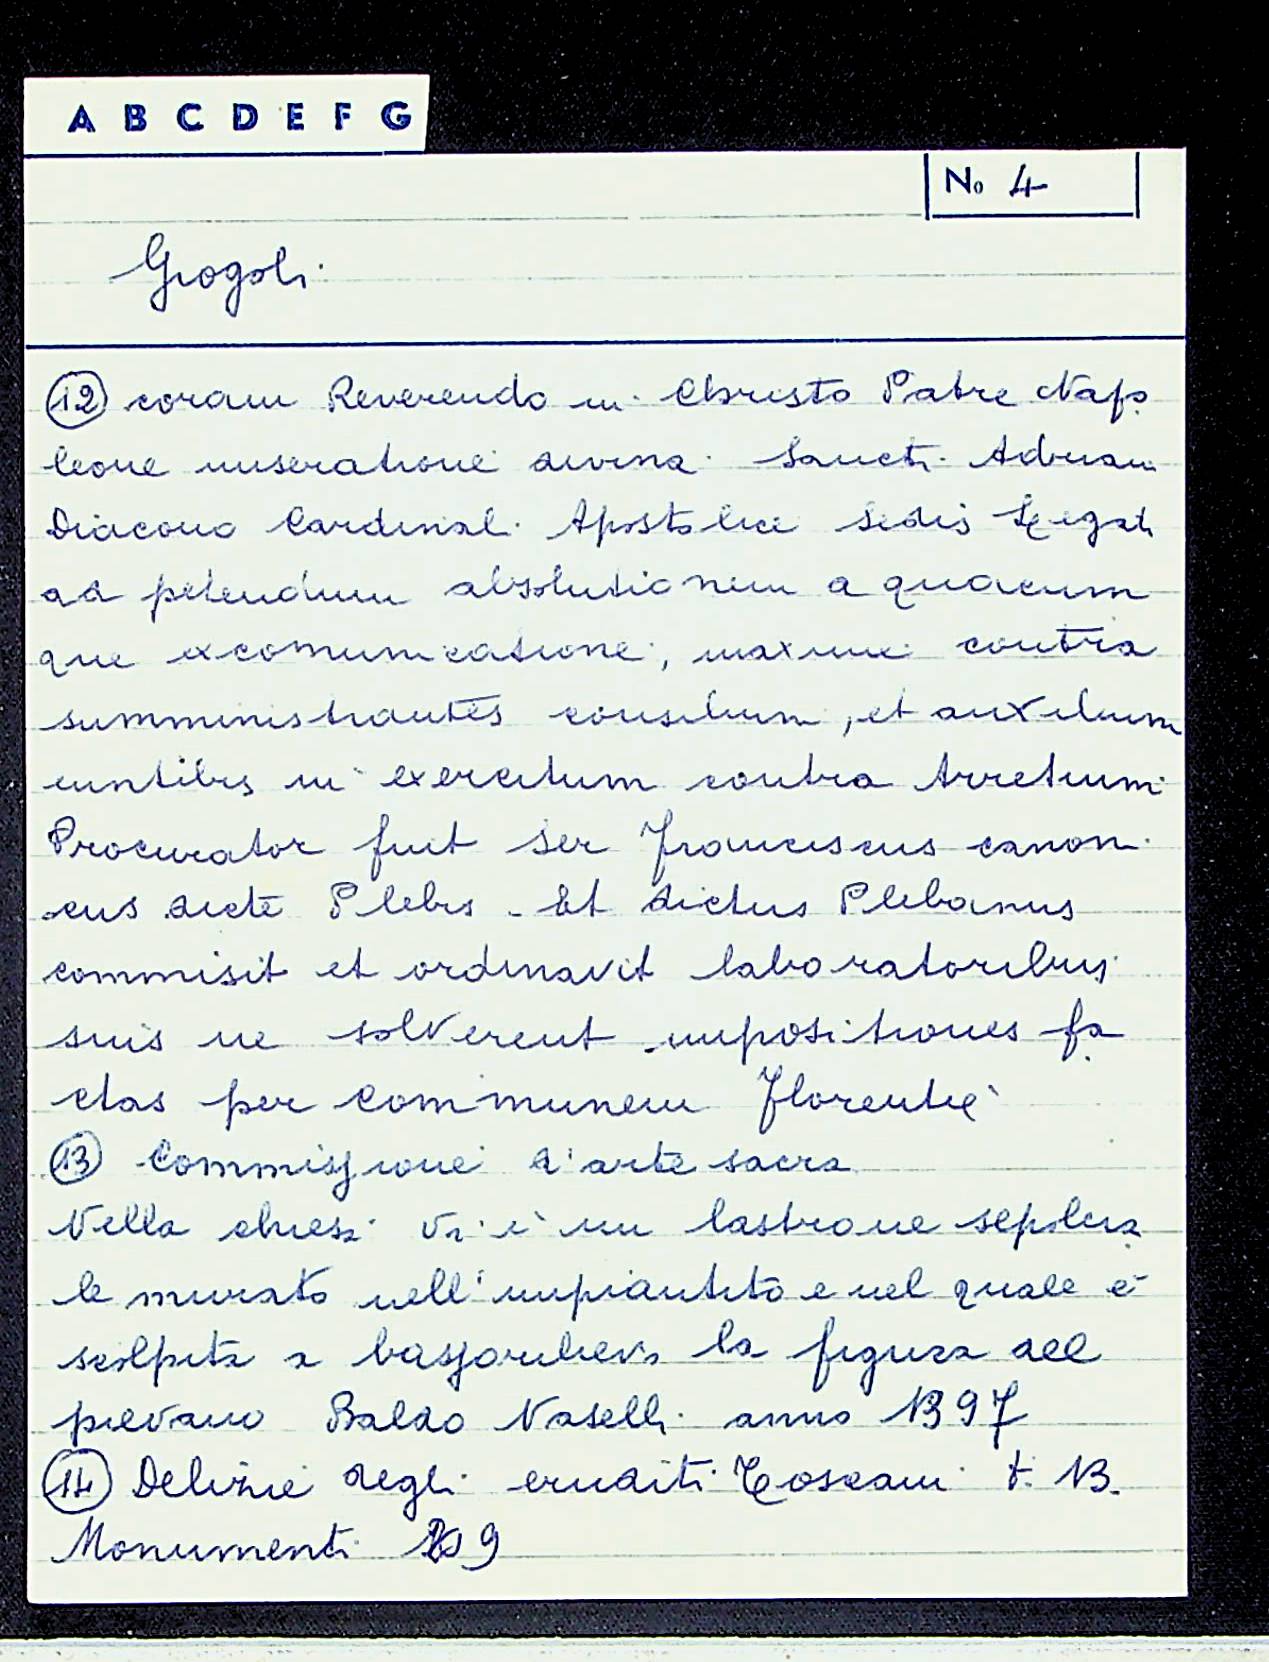 A B C D E F G
No 4
Giogoli
12 coram Reverendo in Christo Patre Napo
leone miseratione divina Sancti Adriani
Diacono Cardinali Apostolice Sedis Legati
ad petendum absolutionem a quacum
que excomunicatione, maxime contra
sumministrantes consilium, et auxilium
euntibus in exercitum contra Arretium
Procurator fuit ser Franciscus canoni
cus dicte Plebis. Et dictus Plebanus
commisit et ordinavit laboratoribus
suis ne solverent impositiones fa
ctas per communem Florentie
13 Commissione d'arte sacra
Nella chiesa vi è un lastrone sepolcra
le murato nell'impiantito e nel quale è
scolpita a bassorilievo la figura del
pievano Baldo Naselli anno 1397
14 Delizie degli eruditi Toscani t. 13.
Monumenti